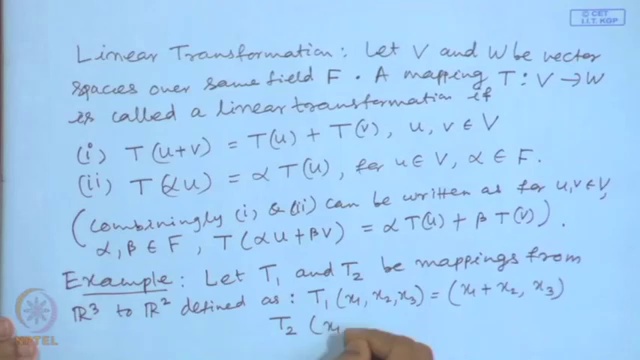 © CET
I.I.T. KGP
Linear Transformation: Let V and W be vector
spaces over same field F. A mapping T: V → W
is called a linear transformation if
(i) T(u+v) = T(u) + T(v), u, v ∈ V
(ii) T(αu) = α T(u), for u ∈ V, α ∈ F.
(Combiningly (i) & (ii) can be written as for u, v ∈ V,
α, β ∈ F, T(αu + βv) = α T(u) + β T(v)).
Example: Let T₁ and T₂ be mappings from
ℝ³ to ℝ² defined as: T₁(x₁, x₂, x₃) = (x₁ + x₂, x₃)
T₂ (x₁
NPTEL